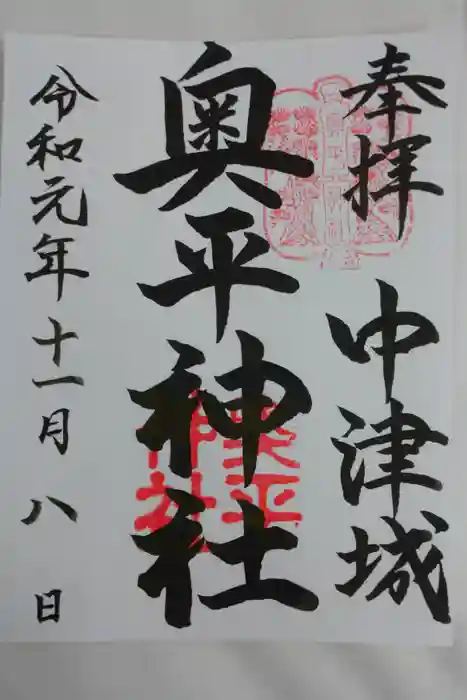 奉拝
中津城
奥平神社
令和元年十一月八日
奥平
神社